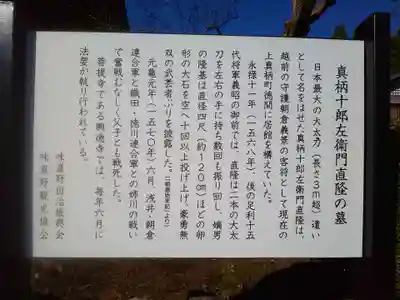 真柄十郎左衛門直隆の墓
日本最大の大太刀(長さ3m超)遣い
として名をはせた真柄十郎左衛門直隆は、
越前の守護朝倉義景の客将として現在の
上真柄町徳間に居館を構えていた。
永禄十一年(一五六八年)、後の足利十五
代将軍義昭の御前では、直隆は二本の大太
刀を左右の手に持ち数回も振り回し、嫡男
の隆基は直径四尺(約120cm)ほどの卵
形の大石を空へ十回以上投げ上げ、豪勇無
双の武芸者ぶりを披露した。(「朝倉始末記」より)
元亀元年(一五七〇年)六月、浅井・朝倉
連合軍と織田・徳川連合軍との姉川の戦い
で奮戦むなしく父子とも戦死した。
菩提寺である興徳寺では、毎年六月に
法要が執り行われている。
味真野自治振興会
味真野観光協会